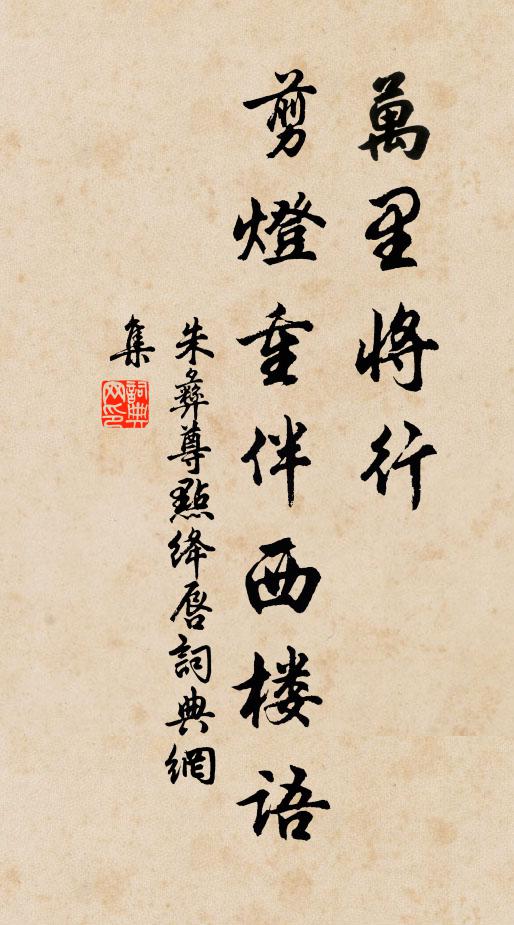 萬里將行
剪燈重伴西楼語
朱彝尊點绛唇詞典網
集
詞典網印